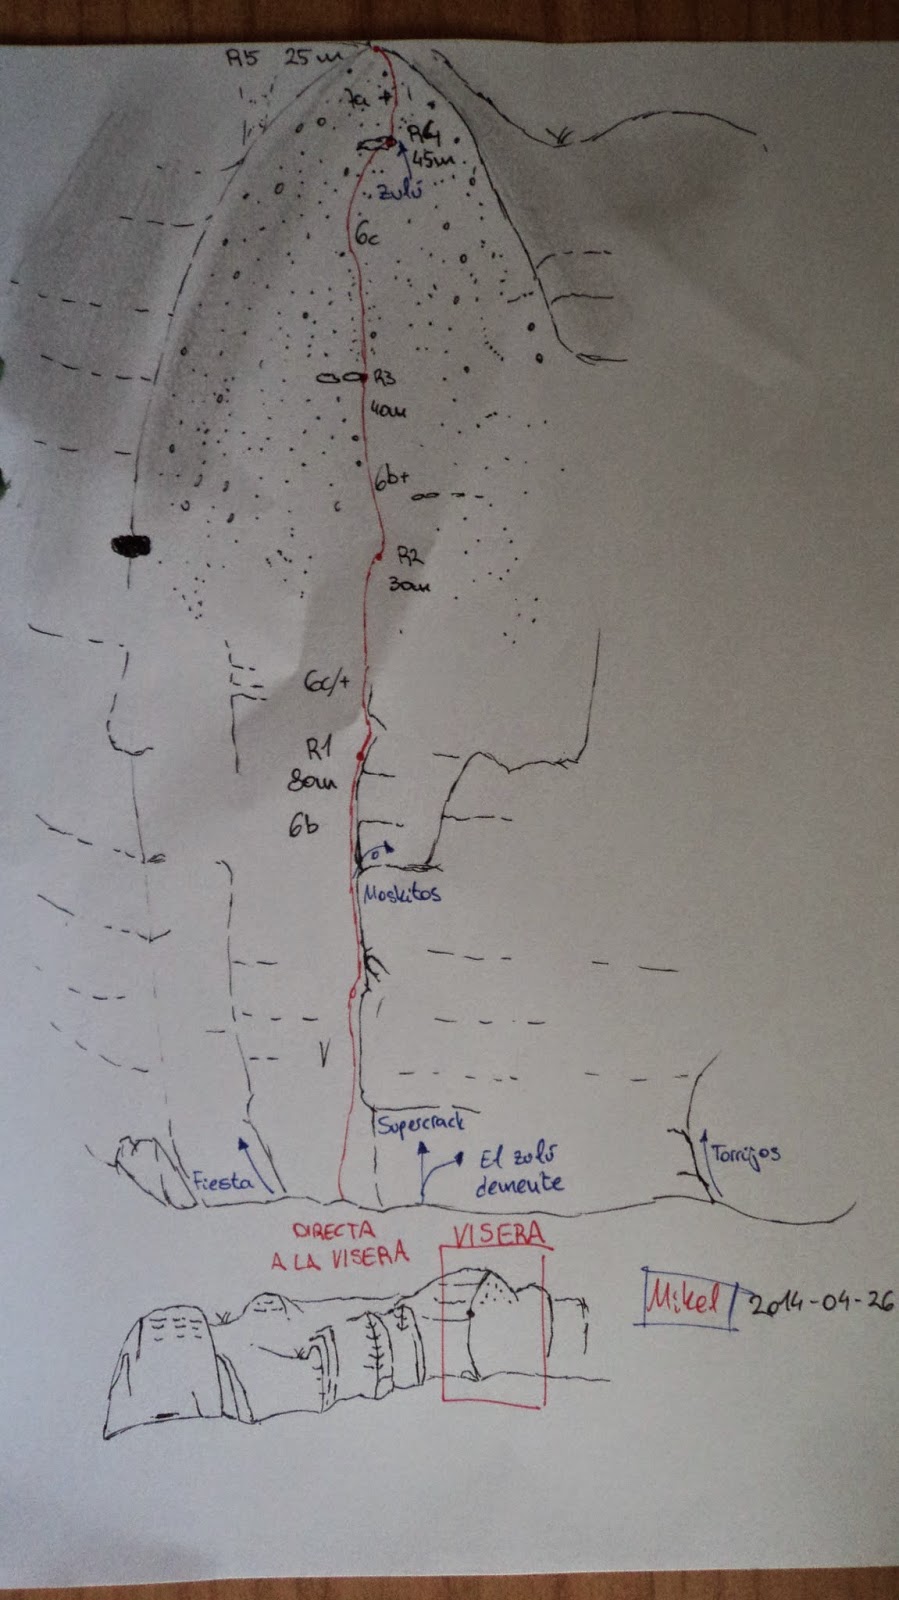 R5 25m
7a+
R4
45m
Zulú
6c
R3
40m
6b+
R2
30m
6c/+
R1
80m
6b
Moskitos
V
Supercrack
Fiesta
El zulú
demente
Torrijos
DIRECTA
A LA VISERA
VISERA
Mikel 2014-04-26